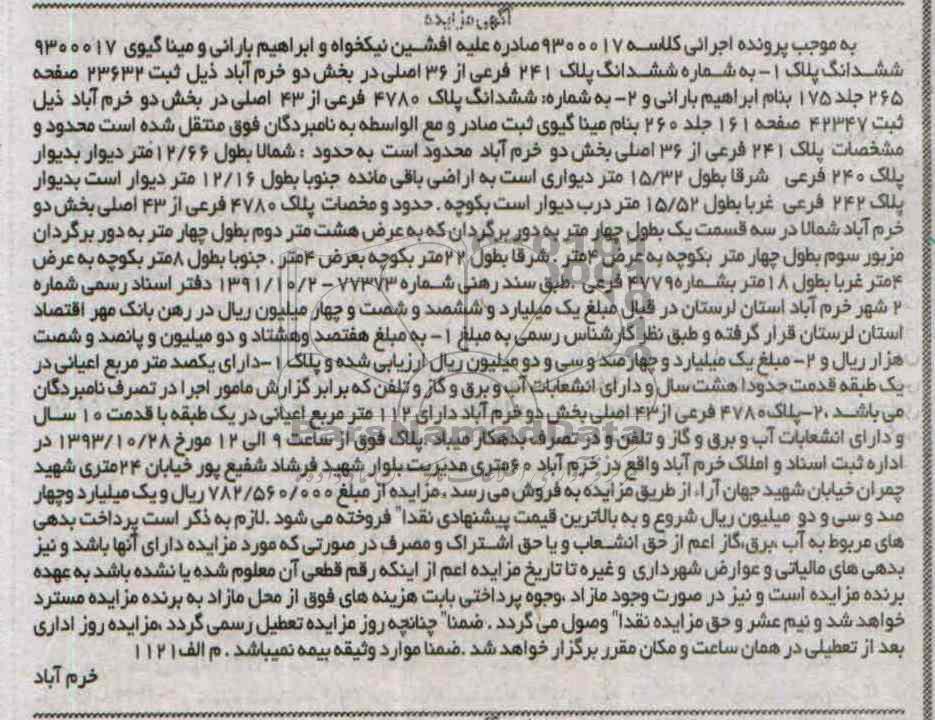 آگهی مزایده
به موجب پرونده اجرائی کلاسه ۹۳۰۰۰۱۷ صادره علیه افشین نیکخواه و ابراهیم بارانی و مینا گیوی ۹۳۰۰۰۱۷
ششدانگ پلاک ۱- به شماره ششدانگ پلاک ۲۴۱ فرعی از ۳۶ اصلی در بخش دو خرم آباد ذیل ثبت ۲۳۶۳۲ صفحه
۲۶۵ جلد ۱۷۵ بنام ابراهیم بارانی و ۲- به شماره: ششدانگ پلاک ۴۷۸۰ فرعی از ۴۳ اصلی در بخش دو خرم آباد ذیل
ثبت ۴۲۳۴۷ صفحه ۱۶۱ جلد ۲۶۰ بنام مینا گیوی ثبت صادر و مع الواسطه به نامبردگان فوق منتقل شده است محدود و
مشخصات پلاک ۲۴۱ فرعی از ۳۶ اصلی بخش دو خرم آباد محدود است به حدود : شمالا بطول ۱۲/۶۶ متر دیوار بدیوار
پلاک ۲۴۰ فرعی شرقا بطول ۱۵/۳۲ متر دیواری است به اراضی باقی مانده جنوبا بطول ۱۲/۱۶ متر دیوار است بدیوار
پلاک ۲۴۲ فرعی غربا بطول ۱۵/۵۲ متر درب دیوار است بکوچه . حدود و مخصات پلاک ۴۷۸۰ فرعی از ۴۳ اصلی بخش دو
خرم آباد شمالا در سه قسمت یک بطول چهار متر به دور برگردان که به عرض هشت متر دوم بطول چهار متر به دور برگردان
مزبور سوم بطول چهار متر بکوچه به عرض ۴متر . شرقا بطول ۲۲متر بکوچه بعرض ۴متر . جنوبا بطول ۸متر بکوچه به عرض
۴متر غربا بطول ۱۸متر بشماره ۴۷۷۹ فرعی .طبق سند رهنی شماره ۷۷۳۷۳ - ۱۳۹۱/۱۰/۲ دفتر اسناد رسمی شماره
۲ شهر خرم آباد استان لرستان در قبال مبلغ یک میلیارد و ششصد و شصت و چهار میلیون ریال در رهن بانک مهر اقتصاد
استان لرستان قرار گرفته و طبق نظر کارشناس رسمی به مبلغ ۱- به مبلغ هفتصد وهشتاد و دو میلیون و پانصد و شصت
هزار ریال و ۲- مبلغ یک میلیارد و چهارصد و سی و دو میلیون ریال ارزیابی شده و پلاک ۱-دارای یکصد متر مربع اعیانی در
یک طبقه قدمت حدودا هشت سال و دارای انشعابات آب و برق و گاز و تلفن که برابر گزارش مامور اجرا در تصرف نامبردگان
می باشد .۲-پلاک ۴۷۸۰ فرعی از۴۳ اصلی بخش دو خرم آباد دارای ۱۱۲ متر مربع اعیانی در یک طبقه با قدمت ۱۰ سال
و دارای انشعابات آب و برق و گاز و تلفن و در تصرف بدهکار میباد. پلاک فوق از ساعت ۹ الی ۱۲ مورخ ۱۳۹۳/۱۰/۲۸ در
اداره ثبت اسناد و املاک خرم آباد واقع در خرم آباد ۶۰متری مدیریت بلوار شهید فرشاد شفیع پور خیابان ۲۴متری شهید
چمران خیابان شهید جهان آراء از طریق مزایده به فروش می رسد .مزایده از مبلغ ۷۸۲/۵۶۰/۰۰۰ ریال و یک میلیارد وچهار
صد و سی و دو میلیون ریال شروع و به بالاترین قیمت پیشنهادی نقدا" فروخته می شود .لازم به ذکر است پرداخت بدهی
های مربوط به آب ،برق،گاز اعم از حق انشعاب و یا حق اشتراک و مصرف در صورتی که مورد مزایده دارای آنها باشد و نیز
بدهی های مالیاتی و عوارض شهرداری و غیره تا تاریخ مزایده اعم از اینکه رقم قطعی آن معلوم شده یا نشده باشد به عهده
برنده مزایده است و نیز در صورت وجود مازاد ،وجوه پرداختی بابت هزینه های فوق از محل مازاد به برنده مزایده مسترد
خواهد شد و نیم عشر و حق مزایده نقدا" وصول می گردد . ضمنا" چنانچه روز مزایده تعطیل رسمی گردد ،مزایده روز اداری
بعد از تعطیلی در همان ساعت و مکان مقرر برگزار خواهد شد .ضمنا موارد وثیقه بیمه نمیباشد . م الف۱۱۲۱
خرم آباد
ParsNamadData